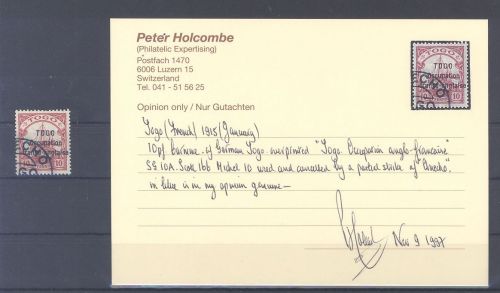 Peter Holcombe
(Philatelic Expertising)
Postfach 1470
6006 Luzern 15
Switzerland
Tel. 041 - 51 56 25
Opinion only / Nur Gutachten
Togo (French) 1915 (January)
10pf carmine of German Togo overprinted "Togo Occupation anglo-francaise"
SG 10A. Scott 166 Michel 10 used and cancelled by a partial strike of "Anecho"
in blue is in my opinion genuine
Nov 9 1987
TOGO
TOGO
Occupation
10
TOGO
TOGO
Occupation
10